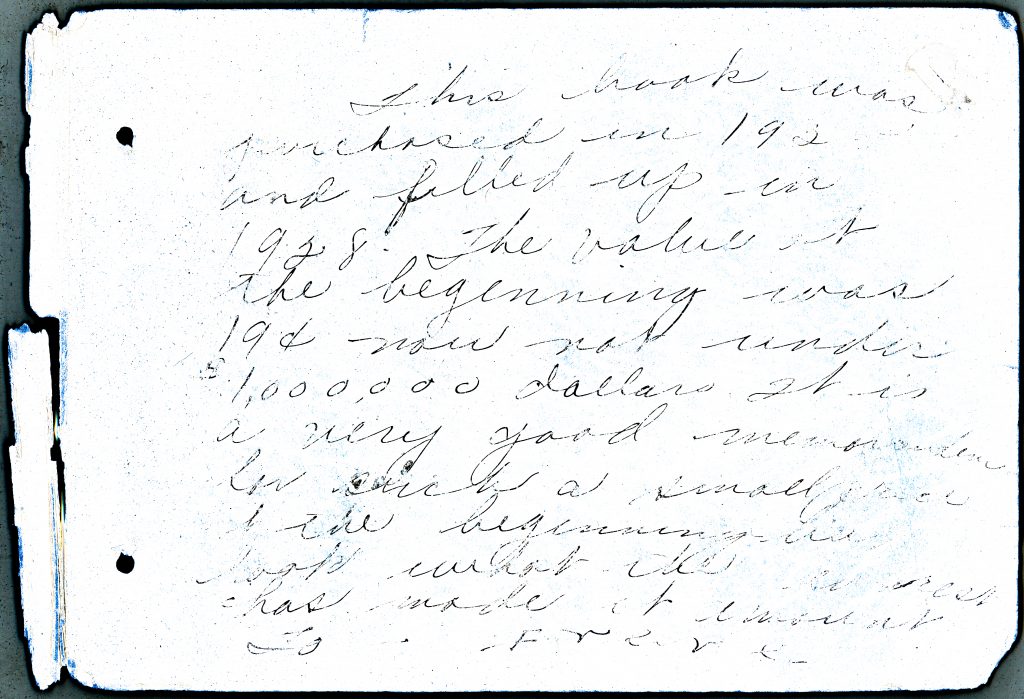 This book was
purchased in 192
and filled up in
1928. The value at
the beginning was
19¢ now not under
$1,000,000 dollars It is
a very good memorandem
for such a small price
at the beginning but
look what the interest
has made it amount
To